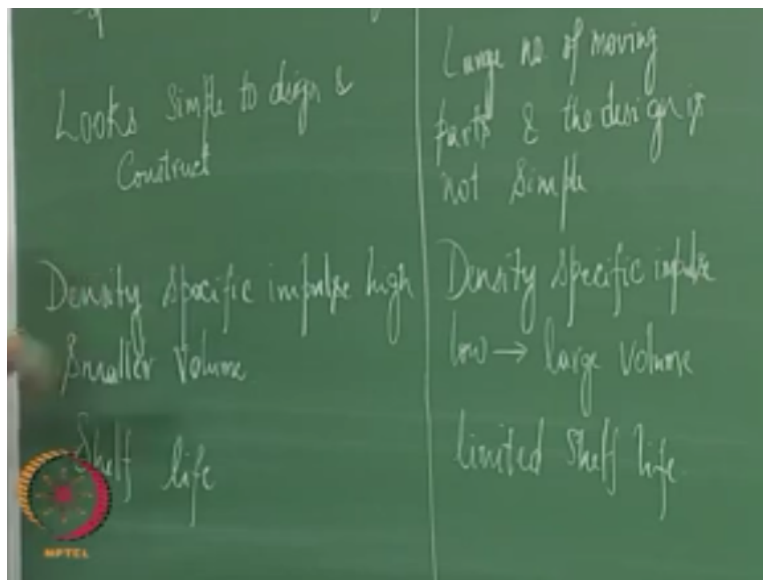 Looks Simple to design &
Construct
Density Specific impulse high
Smaller Volume
Shelf life
Large no. of moving
parts & the design is
not Simple
Density Specific impulse
low → large Volume
limited Shelf life.
NPTEL